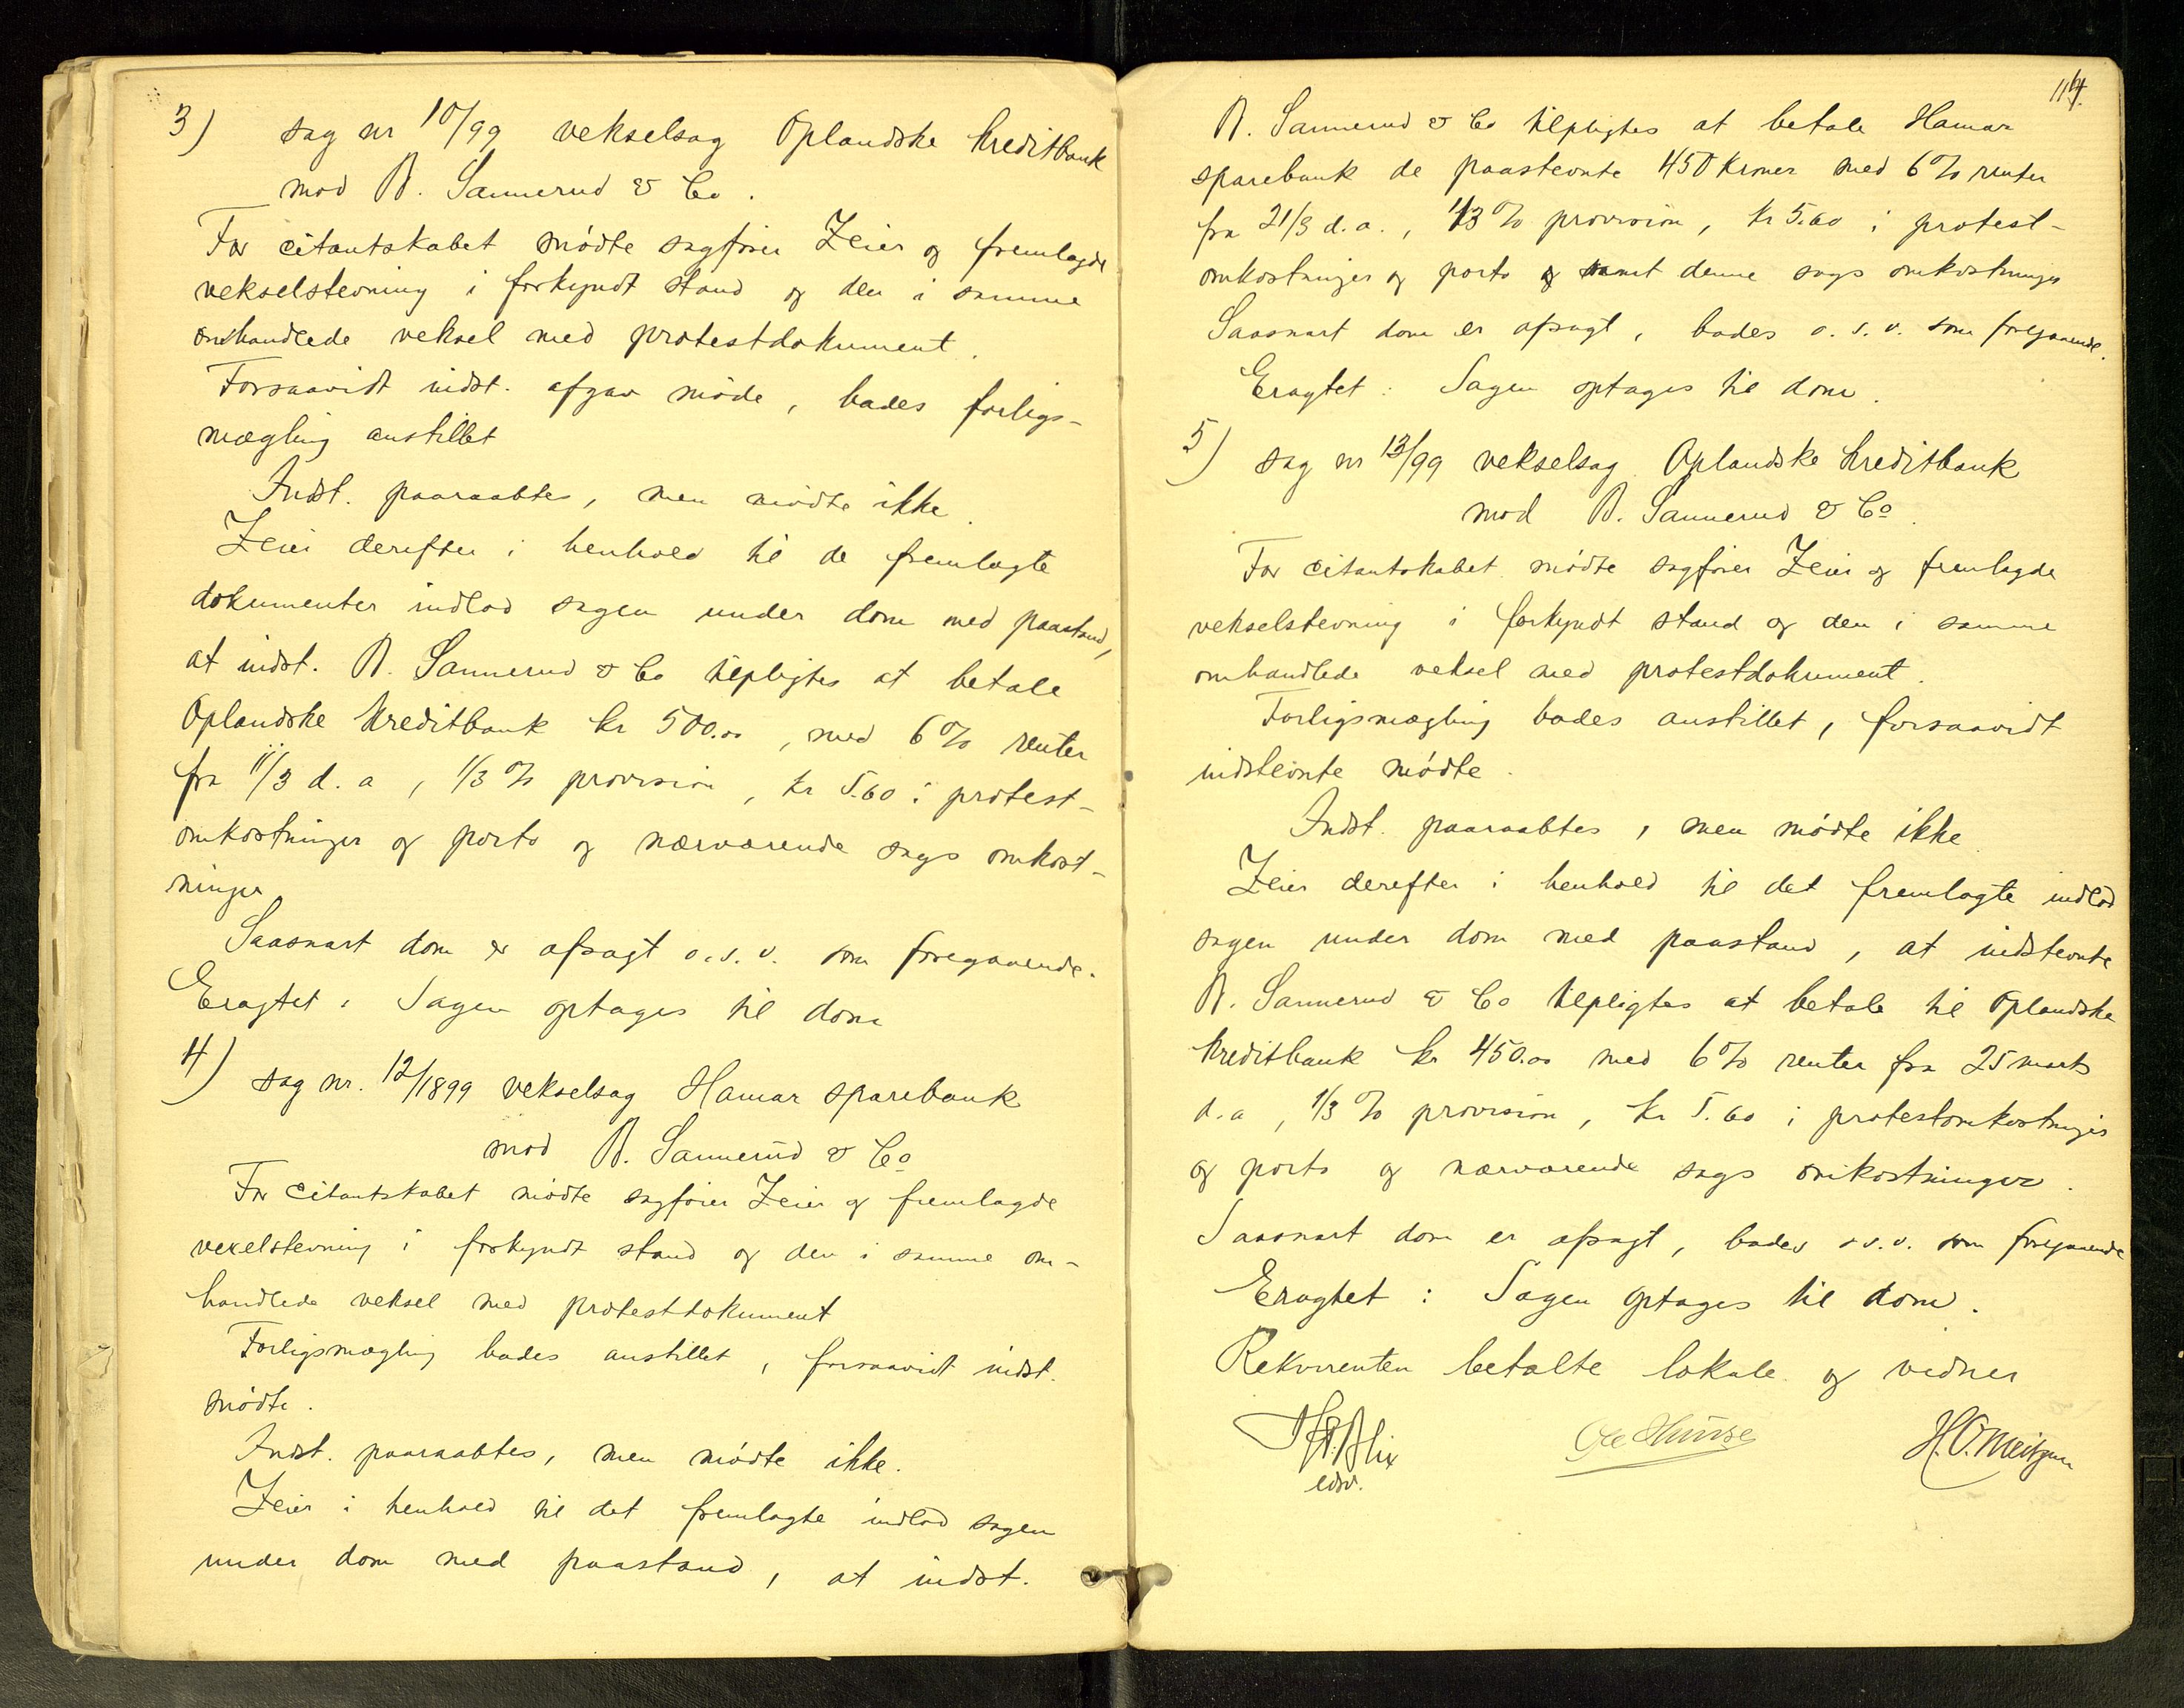 3) sag nr 10/99 vekselsag Oplandske Kreditbank
mod A. Sannerud & Co.
For citantskabet mødte sagfører Zeier og fremlagde
vekselstevning i forkyndt stand og den i samme
omhandlede veksel med protestdokument.
Forsaavidt indst. afgav møde, bades forligs-
mægling anstillet
Indst. paaraabtes, men mødte ikke.
Zeier derefter i henhold til de fremlagte
dokumenter indlod sagen under dom med paastand,
at indst. A. Sannerud & Co tilpligtes at betale
Oplandske Kreditbank kr 500.00, med 6% renter
fra 11/3 d. a, 1/3 % provision, kr 5.60 i protest-
omkostninger og porto og nærværende sags omkost-
ninger
Saasnart dom er afsagt o. s. v. som foregaaende.
Eragtet: Sagen optages til dom
4) sag nr. 12/1899 vekselsag Hamar sparebank
mod A. Sannerud & Co
For citantskabet mødte sagfører Zeier og fremlagde
vexelstevning i forkyndt stand og den i samme om-
handlede veksel med protestdokument
Forligsmægling bades anstillet, forsaavidt indst.
mødte.
Indst. paaraabtes, men mødte ikke.
Zeier i henhold til det fremlagte indlod sagen
under dom med paastand, at indst.
114.
A. Sannerud & Co tilpligtes at betale Hamar
sparebank de paastevnte 450 kroner med 6% renter
fra 21/3 d. a., 1/3 % provision, kr 5.60 i protest-
omkostninger og porto samt denne sags omkostninger
Saasnart dom er afsagt, bades o. s. v. som foregaaende.
Eragtet: Sagen optages til dom.
5) sag nr 13/99 vekselsag Oplandske Kreditbank
mod A. Sannerud & Co.
For citantskabet mødte sagfører Zeier og fremlagde
vekselstevning i forkyndt stand og den i samme
omhandlede veksel med protestdokument.
Forligsmægling bades anstillet, forsaavidt
indstevnte mødte.
Indst. paaraabtes, men mødte ikke.
Zeier derefter i henhold til det fremlagte indlod
sagen under dom med paastand, at indstevnte
A. Sannerud & Co tilpligtes at betale til Oplandske
Kreditbank kr 450.00 med 6% renter fra 25 marts
d. a, 1/3 % provision, kr 5.60 i protestomkostninger
og porto og nærværende sags omkostninger.
Saasnart dom er afsagt, bades o. s. v. som foregaaende
Eragtet: Sagen optages til dom.
Rekvirenten betalte lokale og vidner
Blix
edsv.
Ole